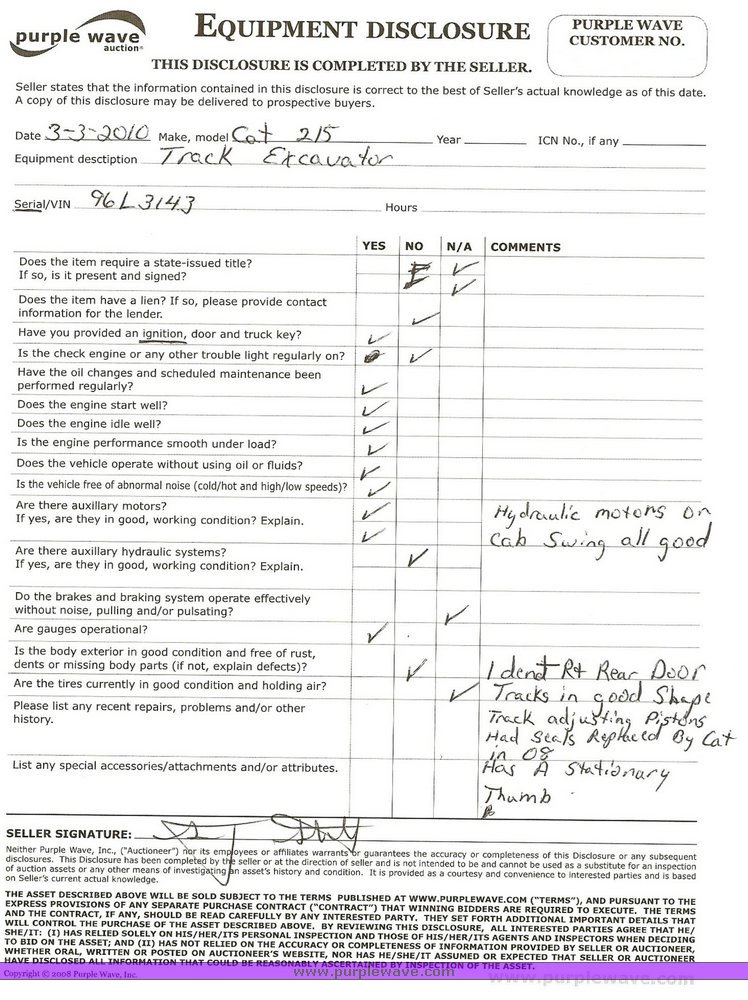 purple wave
auction®
EQUIPMENT DISCLOSURE
PURPLE WAVE
CUSTOMER NO.
THIS DISCLOSURE IS COMPLETED BY THE SELLER.
Seller states that the information contained in this disclosure is correct to the best of Seller's actual knowledge as of this date.
A copy of this disclosure may be delivered to prospective buyers.
Date 3-3-2010 Make, model Cat 215 Year ICN No., if any
Equipment desctiption Track Excavator
Serial/VIN 96L3143 Hours
YES NO N/A COMMENTS
Does the item require a state-issued title?
If so, is it present and signed?
Does the item have a lien? If so, please provide contact
information for the lender.
Have you provided an ignition, door and truck key?
Is the check engine or any other trouble light regularly on?
Have the oil changes and scheduled maintenance been
performed regularly?
Does the engine start well?
Does the engine idle well?
Is the engine performance smooth under load?
Does the vehicle operate without using oil or fluids?
Is the vehicle free of abnormal noise (cold/hot and high/low speeds)?
Are there auxillary motors?
If yes, are they in good, working condition? Explain.
Hydraulic motors on
Cab Swing all good
Are there auxillary hydraulic systems?
If yes, are they in good, working condition? Explain.
Do the brakes and braking system operate effectively
without noise, pulling and/or pulsating?
Are gauges operational?
Is the body exterior in good condition and free of rust,
dents or missing body parts (if not, explain defects)?
1 dent Rt Rear Door
Are the tires currently in good condition and holding air?
Tracks in good Shape
Please list any recent repairs, problems and/or other
history.
Track adjusting Pistons
Had Seals Replaced By Cat
in 08
List any special accessories/attachments and/or attributes.
Has A Stationary
Thumb
SELLER SIGNATURE:
Neither Purple Wave, Inc., ("Auctioneer") nor its employees or affiliates warrants or guarantees the accuracy or completeness of this Disclosure or any subsequent
disclosures. This Disclosure has been completed by the seller or at the direction of seller and is not intended to be and cannot be used as a substitute for an inspection
of auction assets or any other means of investigating an asset's history and condition. It is provided as a courtesy and convenience to interested parties and is based
on Seller's current actual knowledge.
THE ASSET DESCRIBED ABOVE WILL BE SOLD SUBJECT TO THE TERMS PUBLISHED AT WWW.PURPLEWAVE.COM ("TERMS"), AND PURSUANT TO THE
EXPRESS PROVISIONS OF ANY SEPARATE PURCHASE CONTRACT ("CONTRACT") THAT WINNING BIDDERS ARE REQUIRED TO EXECUTE. THE TERMS
AND THE CONTRACT, IF ANY, SHOULD BE READ CAREFULLY BY ANY INTERESTED PARTY. THEY SET FORTH ADDITIONAL IMPORTANT DETAILS THAT
WILL CONTROL THE PURCHASE OF THE ASSET DESCRIBED ABOVE. BY REVIEWING THIS DISCLOSURE, ALL INTERESTED PARTIES AGREE THAT HE/
SHE/IT: (I) HAS RELIED SOLELY ON HIS/HER/ITS PERSONAL INSPECTION AND THOSE OF HIS/HER/ITS AGENTS AND INSPECTORS WHEN DECIDING
TO BID ON THE ASSET; AND (II) HAS NOT RELIED ON THE ACCURACY OR COMPLETENESS OF INFORMATION PROVIDED BY SELLER OR AUCTIONEER,
WHETHER ORAL, WRITTEN OR POSTED ON AUCTIONEER'S WEBSITE, NOR HAS HE/SHE/IT ASSUMED OR EXPECTED THAT SELLER OR AUCTIONEER
HAVE DISCLOSED ALL INFORMATION THAT COULD BE REASONABLY ASCERTAINED BY INSPECTION OF THE ASSET.
Copyright © 2008 Purple Wave, Inc.
www.purplewave.com
www.purplewave.com